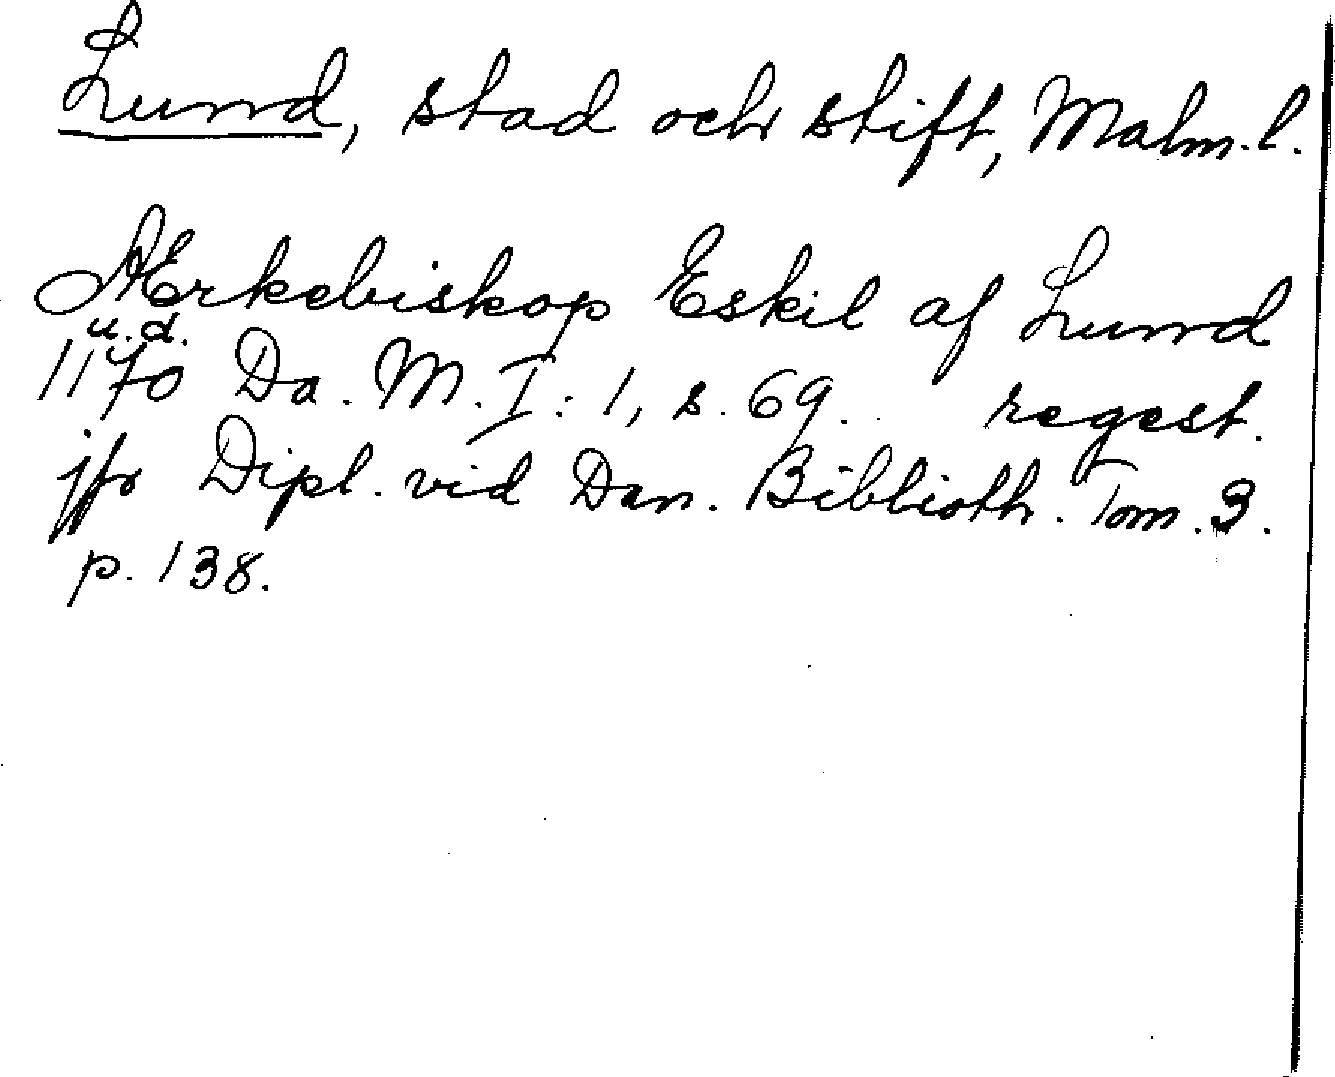 Lund, stad och stift, Malm. l.
Ærkebiskop Eskil af Lund
u. d.
1170 Da. M. I: 1, s. 69. regest.
jfr Dipl. vid Dan. Biblioth. Tom. 3.
p. 138.